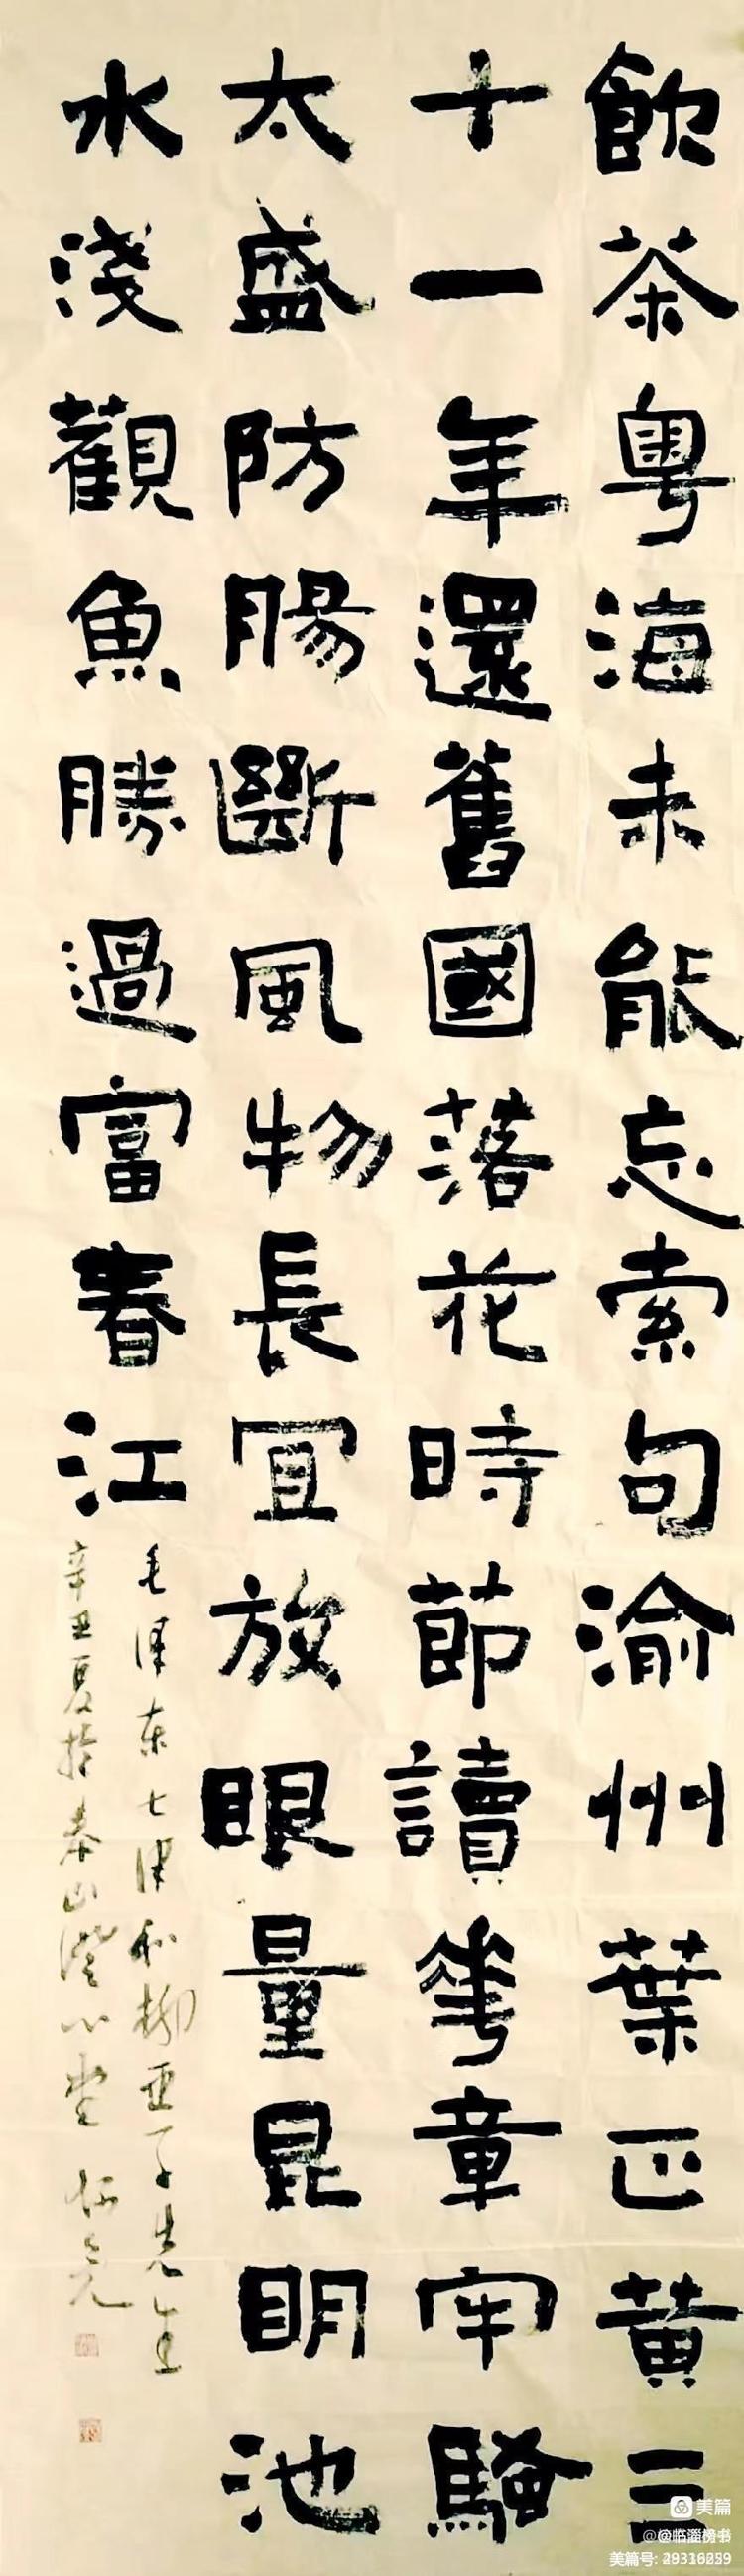 飲茶粵海未能忘索句渝州葉正黄三
十一年還舊國落花時節讀華章牢騷
太盛防腸斷風物長宜放眼量昆明池
水淺觀魚勝過富春江
毛澤东七律和柳亚子先生
辛丑夏於奉山澄心堂
美篇
@临淄榜书
美篇号:29316259